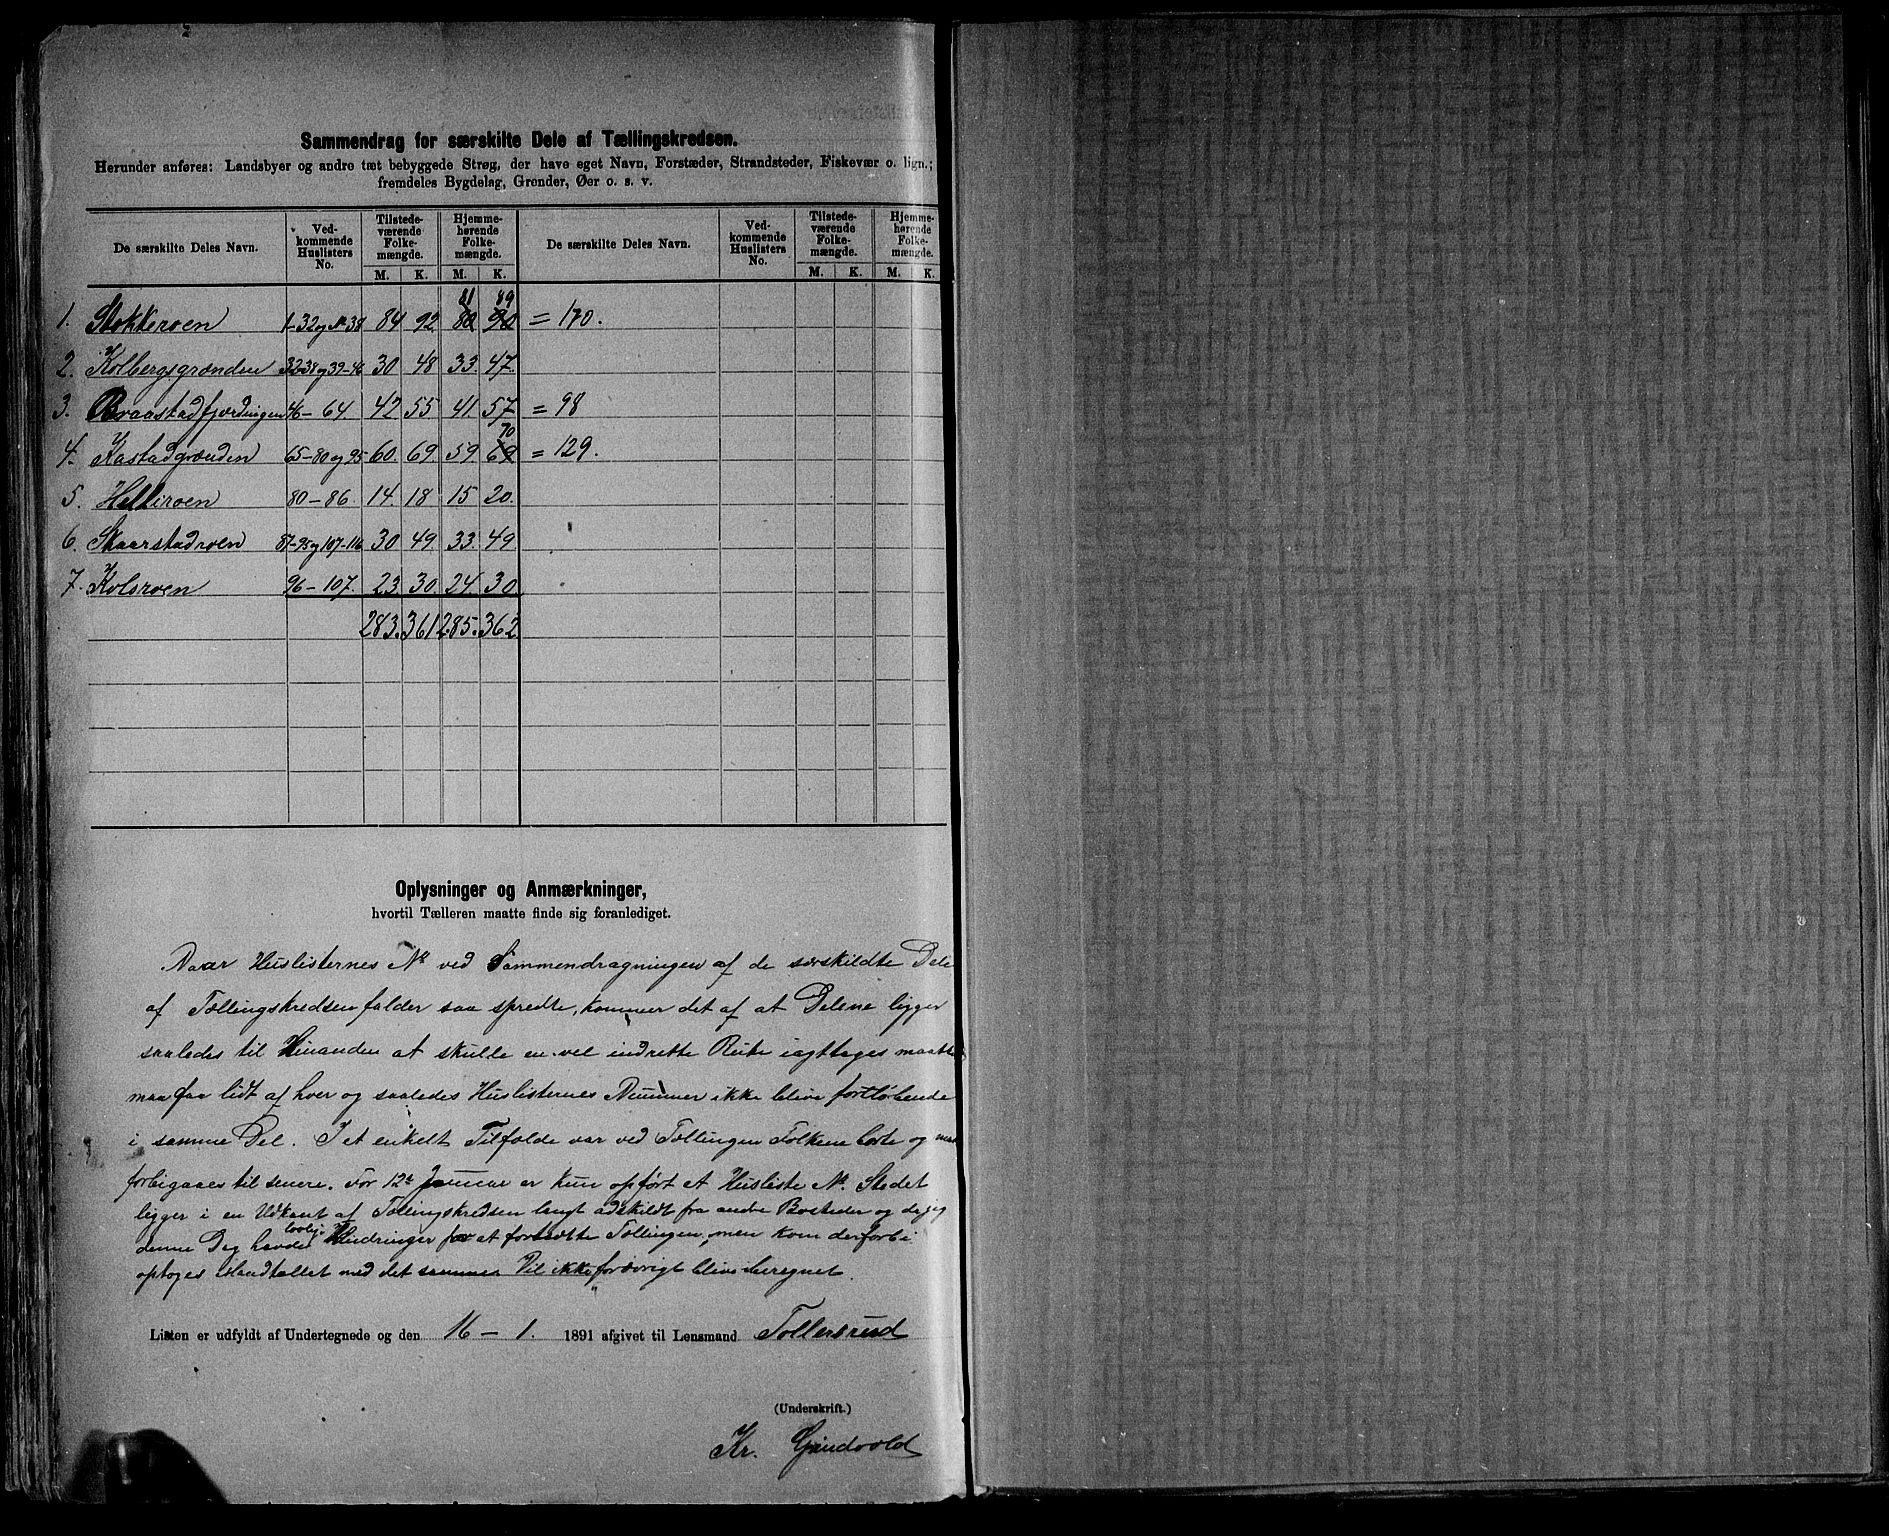 Sammendrag for særskilte Dele af Tællingskredsen.
Herunder anføres: Landsbyer og andre tæt bebyggede Strøg, der have eget Navn, Forstæder, Strandsteder, Fiskevær o. lign.;
fremdeles Bygdelag, Grender, Øer o. s. v.
De særskilte Deles Navn. Ved-kommende Huslisters No. Tilstede-værende Folke-mængde. Hjemme-hørende Folke-mængde. De særskilte Deles Navn. Ved-kommende Huslisters No. Tilstede-værende Folke-mængde. Hjemme-hørende Folke-mængde.
M. K. M. K. M. K. M. K.
81 89
1. Stokkeroen 1-32 og No 38 84 92 80 90 = 170.
2. Kolbergsgrænden 32-38 og 39-46 30 48 33. 47.
3. Braastadfjordingen 46-64 42 55 41. 57 = 98
70
4. Kastadgrænden 65-80 og 95 60. 69. 59. 69 = 129.
5. Helliroen 80-86. 14. 18 15 20.
6. Skaarstadroen 87-95 og 107-116 30 49. 33. 49
7. Kolsroen 96-107. 23. 30. 24. 30
283. 361 285. 362
Oplysninger og Anmærkninger,
hvortil Tælleren maatte finde sig foranlediget.
Naar Huslisternes No ved Sammendragningen af de særskildte Dele
af Tællingskredsen falder saa spredte, kommer det af at Delene ligger
saaledes til Hinanden at skulle en vel indrette Rute iagttages maatte
man faa lidt af hver og saaledes Huslisternes Nummer ikke blive fortløbende
i samme Del. I et enkelt Tilfælde var ved Tællingen Folkene borte og maa
forbigaaes til senere. For 12te Januar er kun opført et Husliste No. Stedet
ligger i en Udkant af Tællingskredsen langt adskildt fra andre Bosteder og da jeg
denne Dag havde lovlig Hindringer for at fortsætte Tællingen, men kom derforbi
optoges Mandtallet med det samme. Vil ikke forøvrigt blive beregnet.
Listen er udfyldt af Undertegnede og den 16-1. 1891 afgivet til Lensmand Tollersrud
(Underskrift.)
Kr. Grindvold